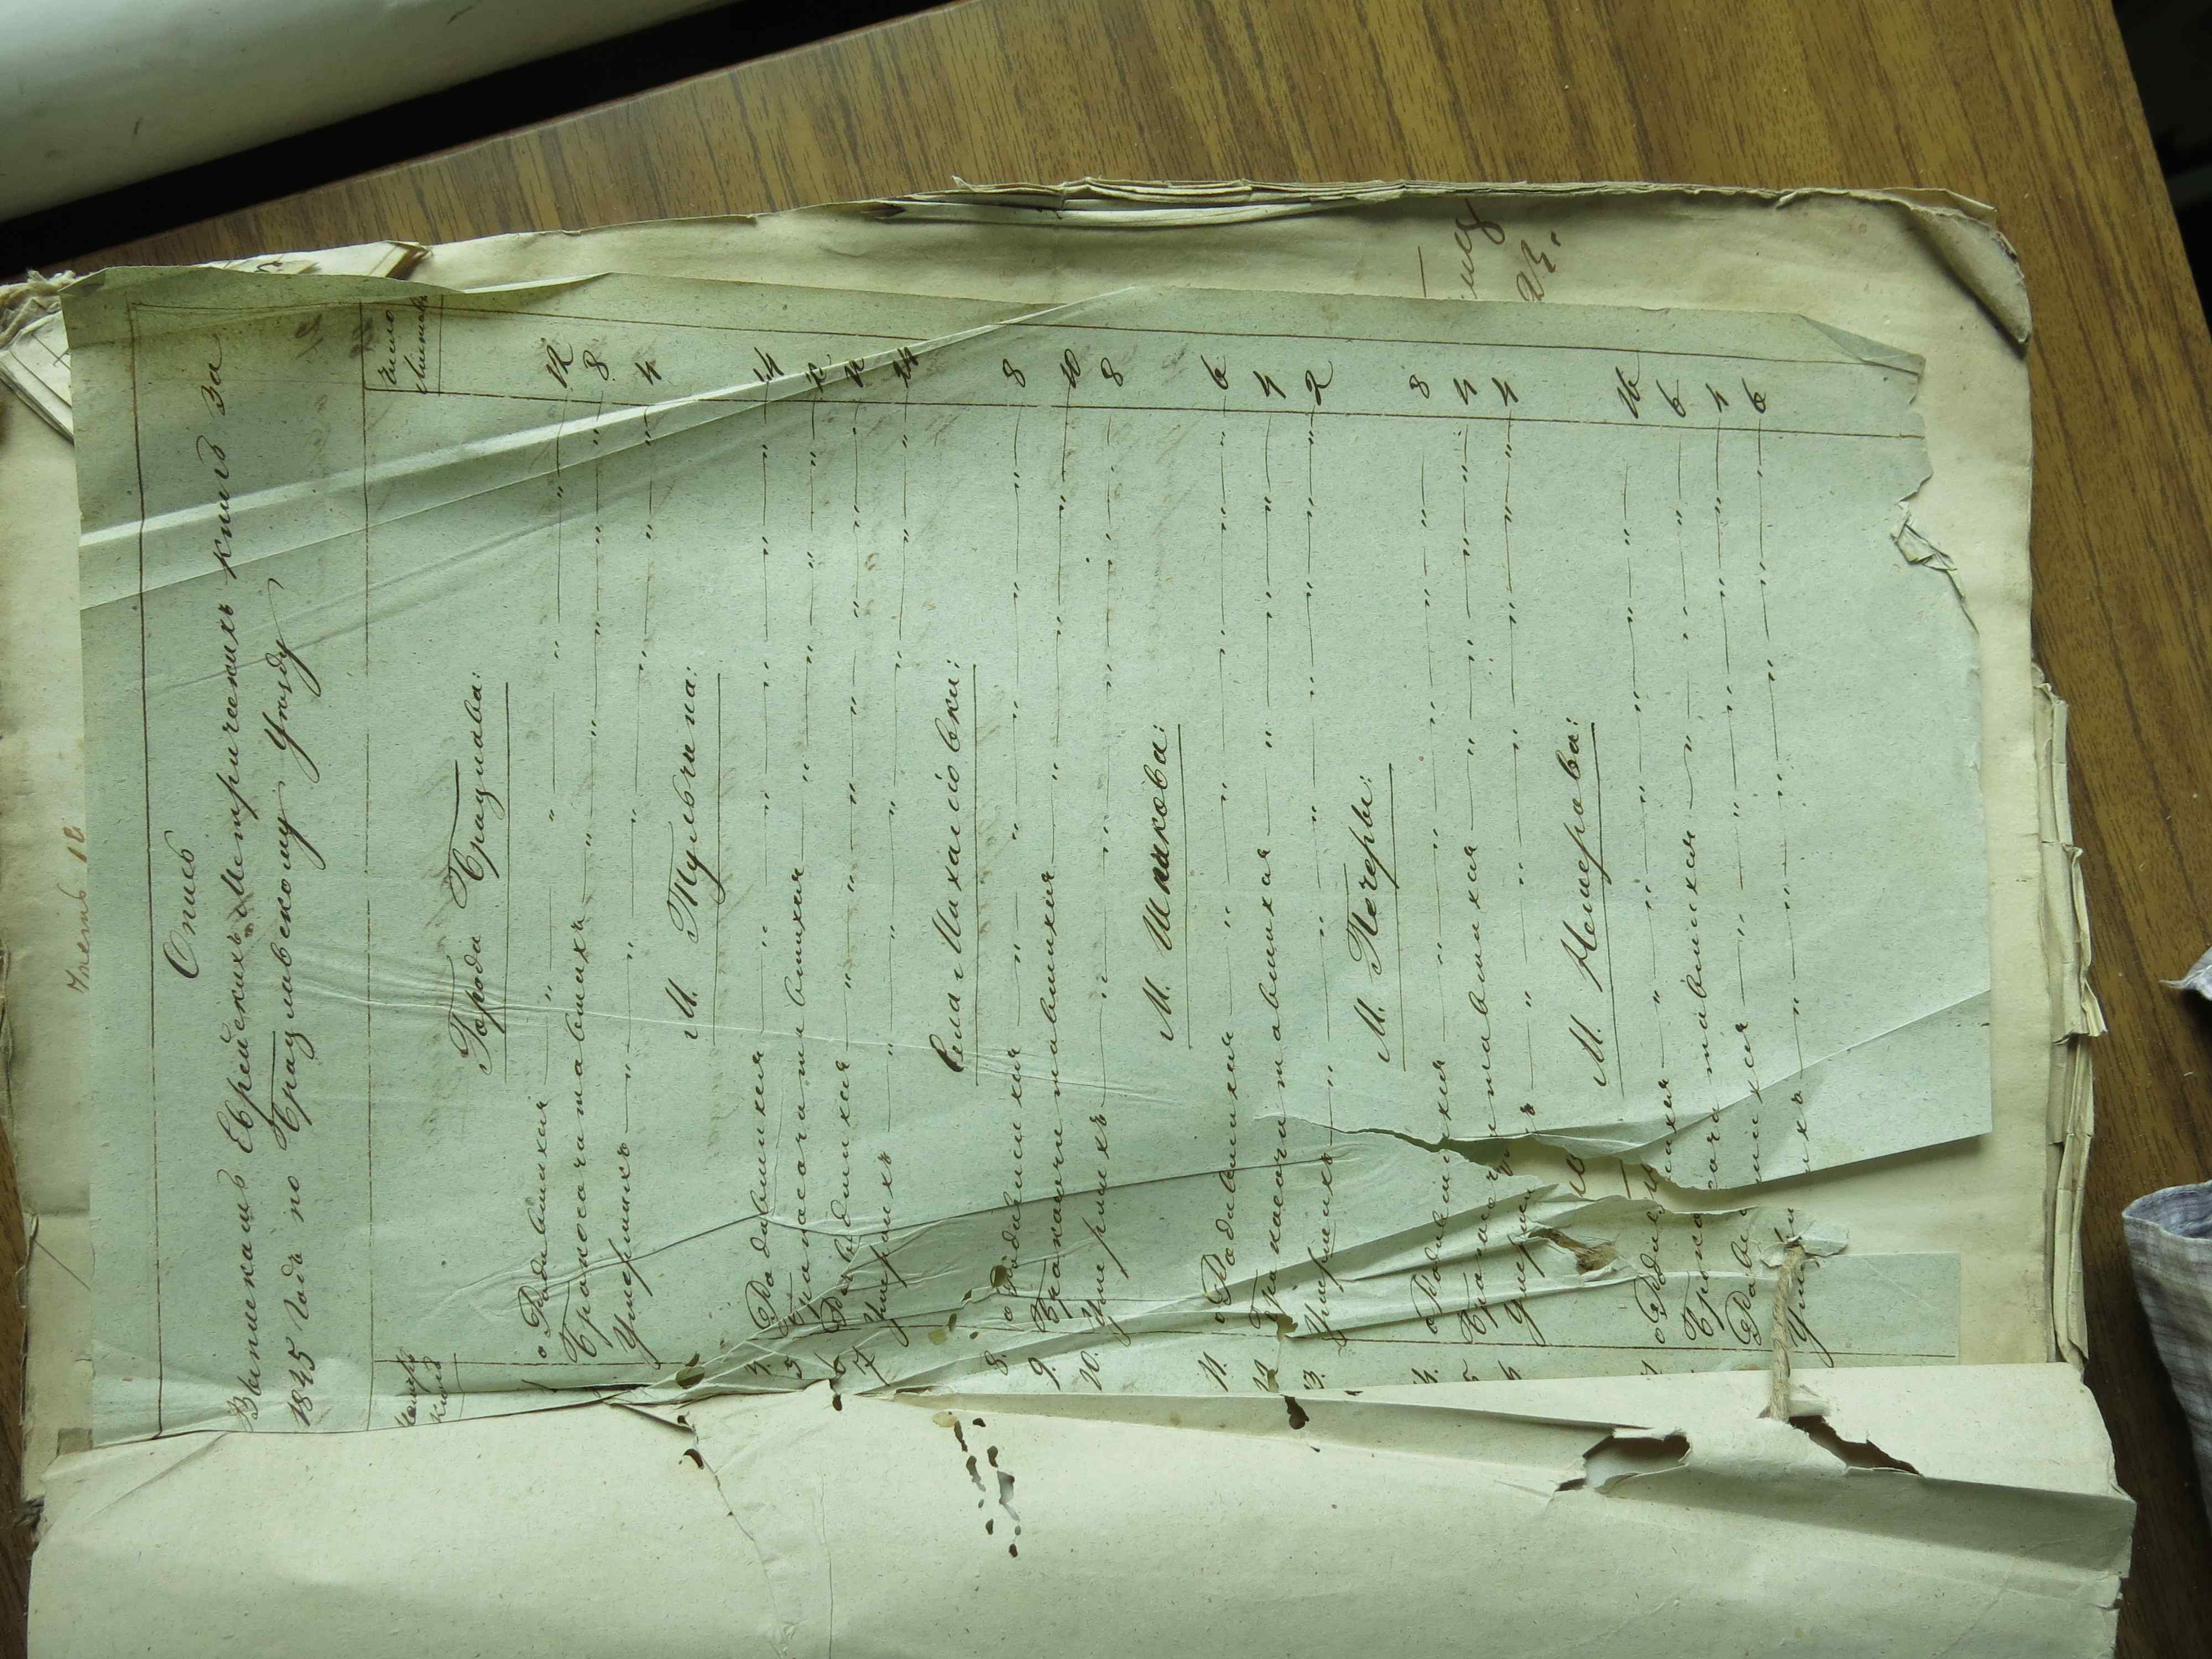 Опись
Выпискамъ Еврейскихъ Метрическихъ книгъ за
1845 годъ по Брацлавскому Уѣзду
Число
Листовъ
Города Брацлава:
о Родившихся 12
Бракосочетавшихъ 8
Умершихъ 4
М. Тульчина:
4. о Родившихся 14
5 Бракосочетавшихся 12
6 Разведшихся
7 Умершихъ 14
Села Михайловки:
8. о Родившихся 8
9. Бракосочетавшихся 10
10. Умершихъ 8
М. Шпикова:
11. о Родившихся 6
12 Бракосочетавшихся 4
13. Умершихъ 2
М. Печеры:
4. о Родившихся 8
5 Бракосочетавшихся 4
Умершихъ 4
М. Немерова:
о Родившихся 16
Бракосочетавшихся 6
Разведшихся 4
Умершихъ 6